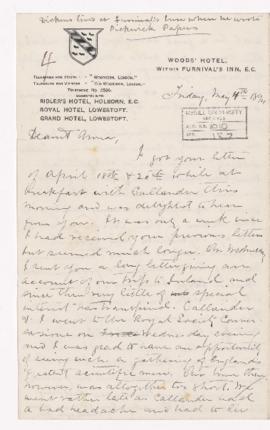 Dickens lived at Furnival's Inn when he wrote
Pickwick Papers
4
WOODS' HOTEL,
WITHIN FURNIVAL'S INN, E.C.
TELEPHONE No
RIDLER'S HOTEL, HOLBORN, E.C.
ROYAL HOTEL, LOWESTOFT.
GRAND HOTEL, LOWESTOFT.
Friday, May 4th 1894
McGILL UNIVERSITY
Dearest Anna,
I got your letter
of April 18th & 20th while at
breakfast with Callendar this
morning and was delighted to hear
from you. It was only a week since
I had received your previous letter
but seemed much longer. On Wednesday
I sent you a long letter giving an
account of our trip to Ireland and
since then very little of special
interest has transpired. Callendar
& I went to the Royal Society Conver-
sazione on Wednesday evening
and I was glad to have an opportunity
of seeing such a gathering of England's
greatest scientific men. Our time there
however was altogether too short. We
went rather late as Callendar had
a bad headache and had to lie